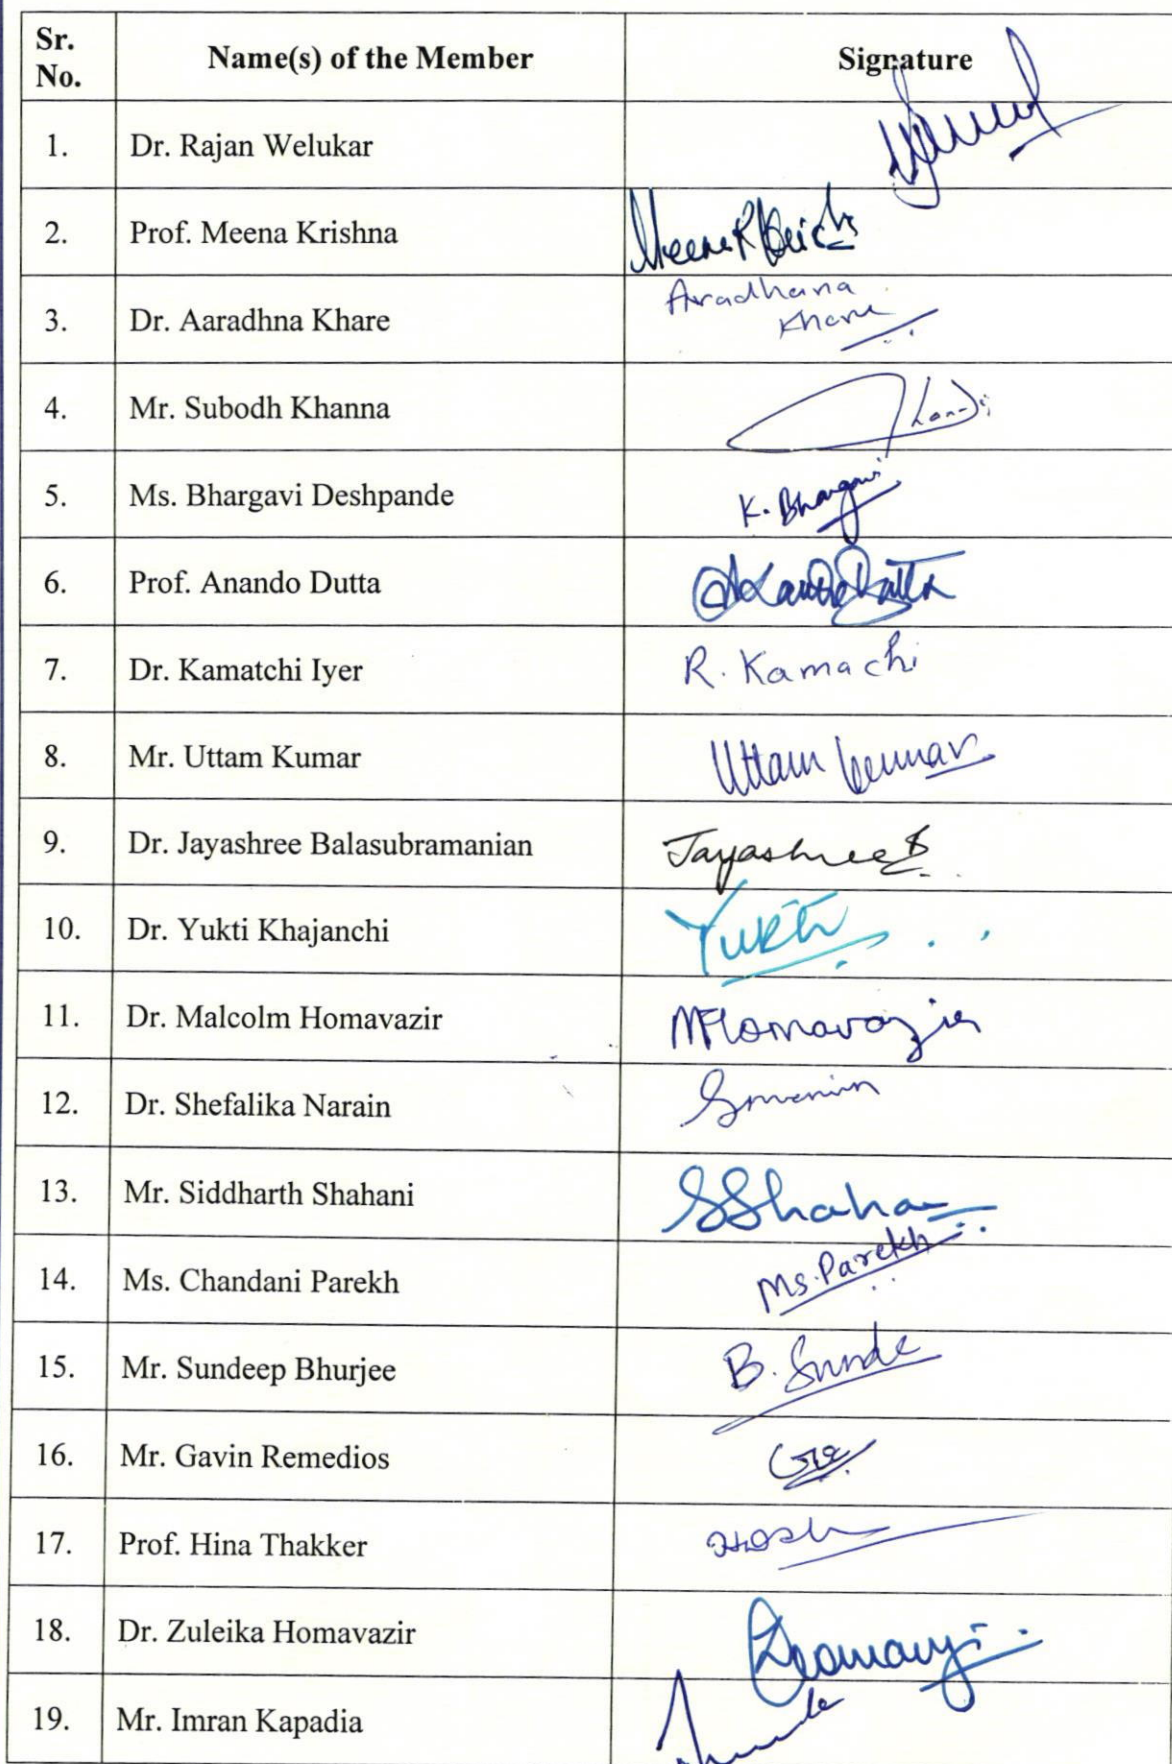 Sr. No. Name(s) of the Member Signature
1. Dr. Rajan Welukar
2. Prof. Meena Krishna
3. Dr. Aaradhna Khare Aradhana
Khare
4. Mr. Subodh Khanna
5. Ms. Bhargavi Deshpande K. Bhargavi
6. Prof. Anando Dutta
7. Dr. Kamatchi Iyer R. Kamachi
8. Mr. Uttam Kumar Uttam Kumar
9. Dr. Jayashree Balasubramanian Jayashree B
10. Dr. Yukti Khajanchi Yukti
11. Dr. Malcolm Homavazir MHomavazir
12. Dr. Shefalika Narain
13. Mr. Siddharth Shahani SShaha
14. Ms. Chandani Parekh Ms. Parekh
15. Mr. Sundeep Bhurjee B. Sunde
16. Mr. Gavin Remedios
17. Prof. Hina Thakker
18. Dr. Zuleika Homavazir
19. Mr. Imran Kapadia